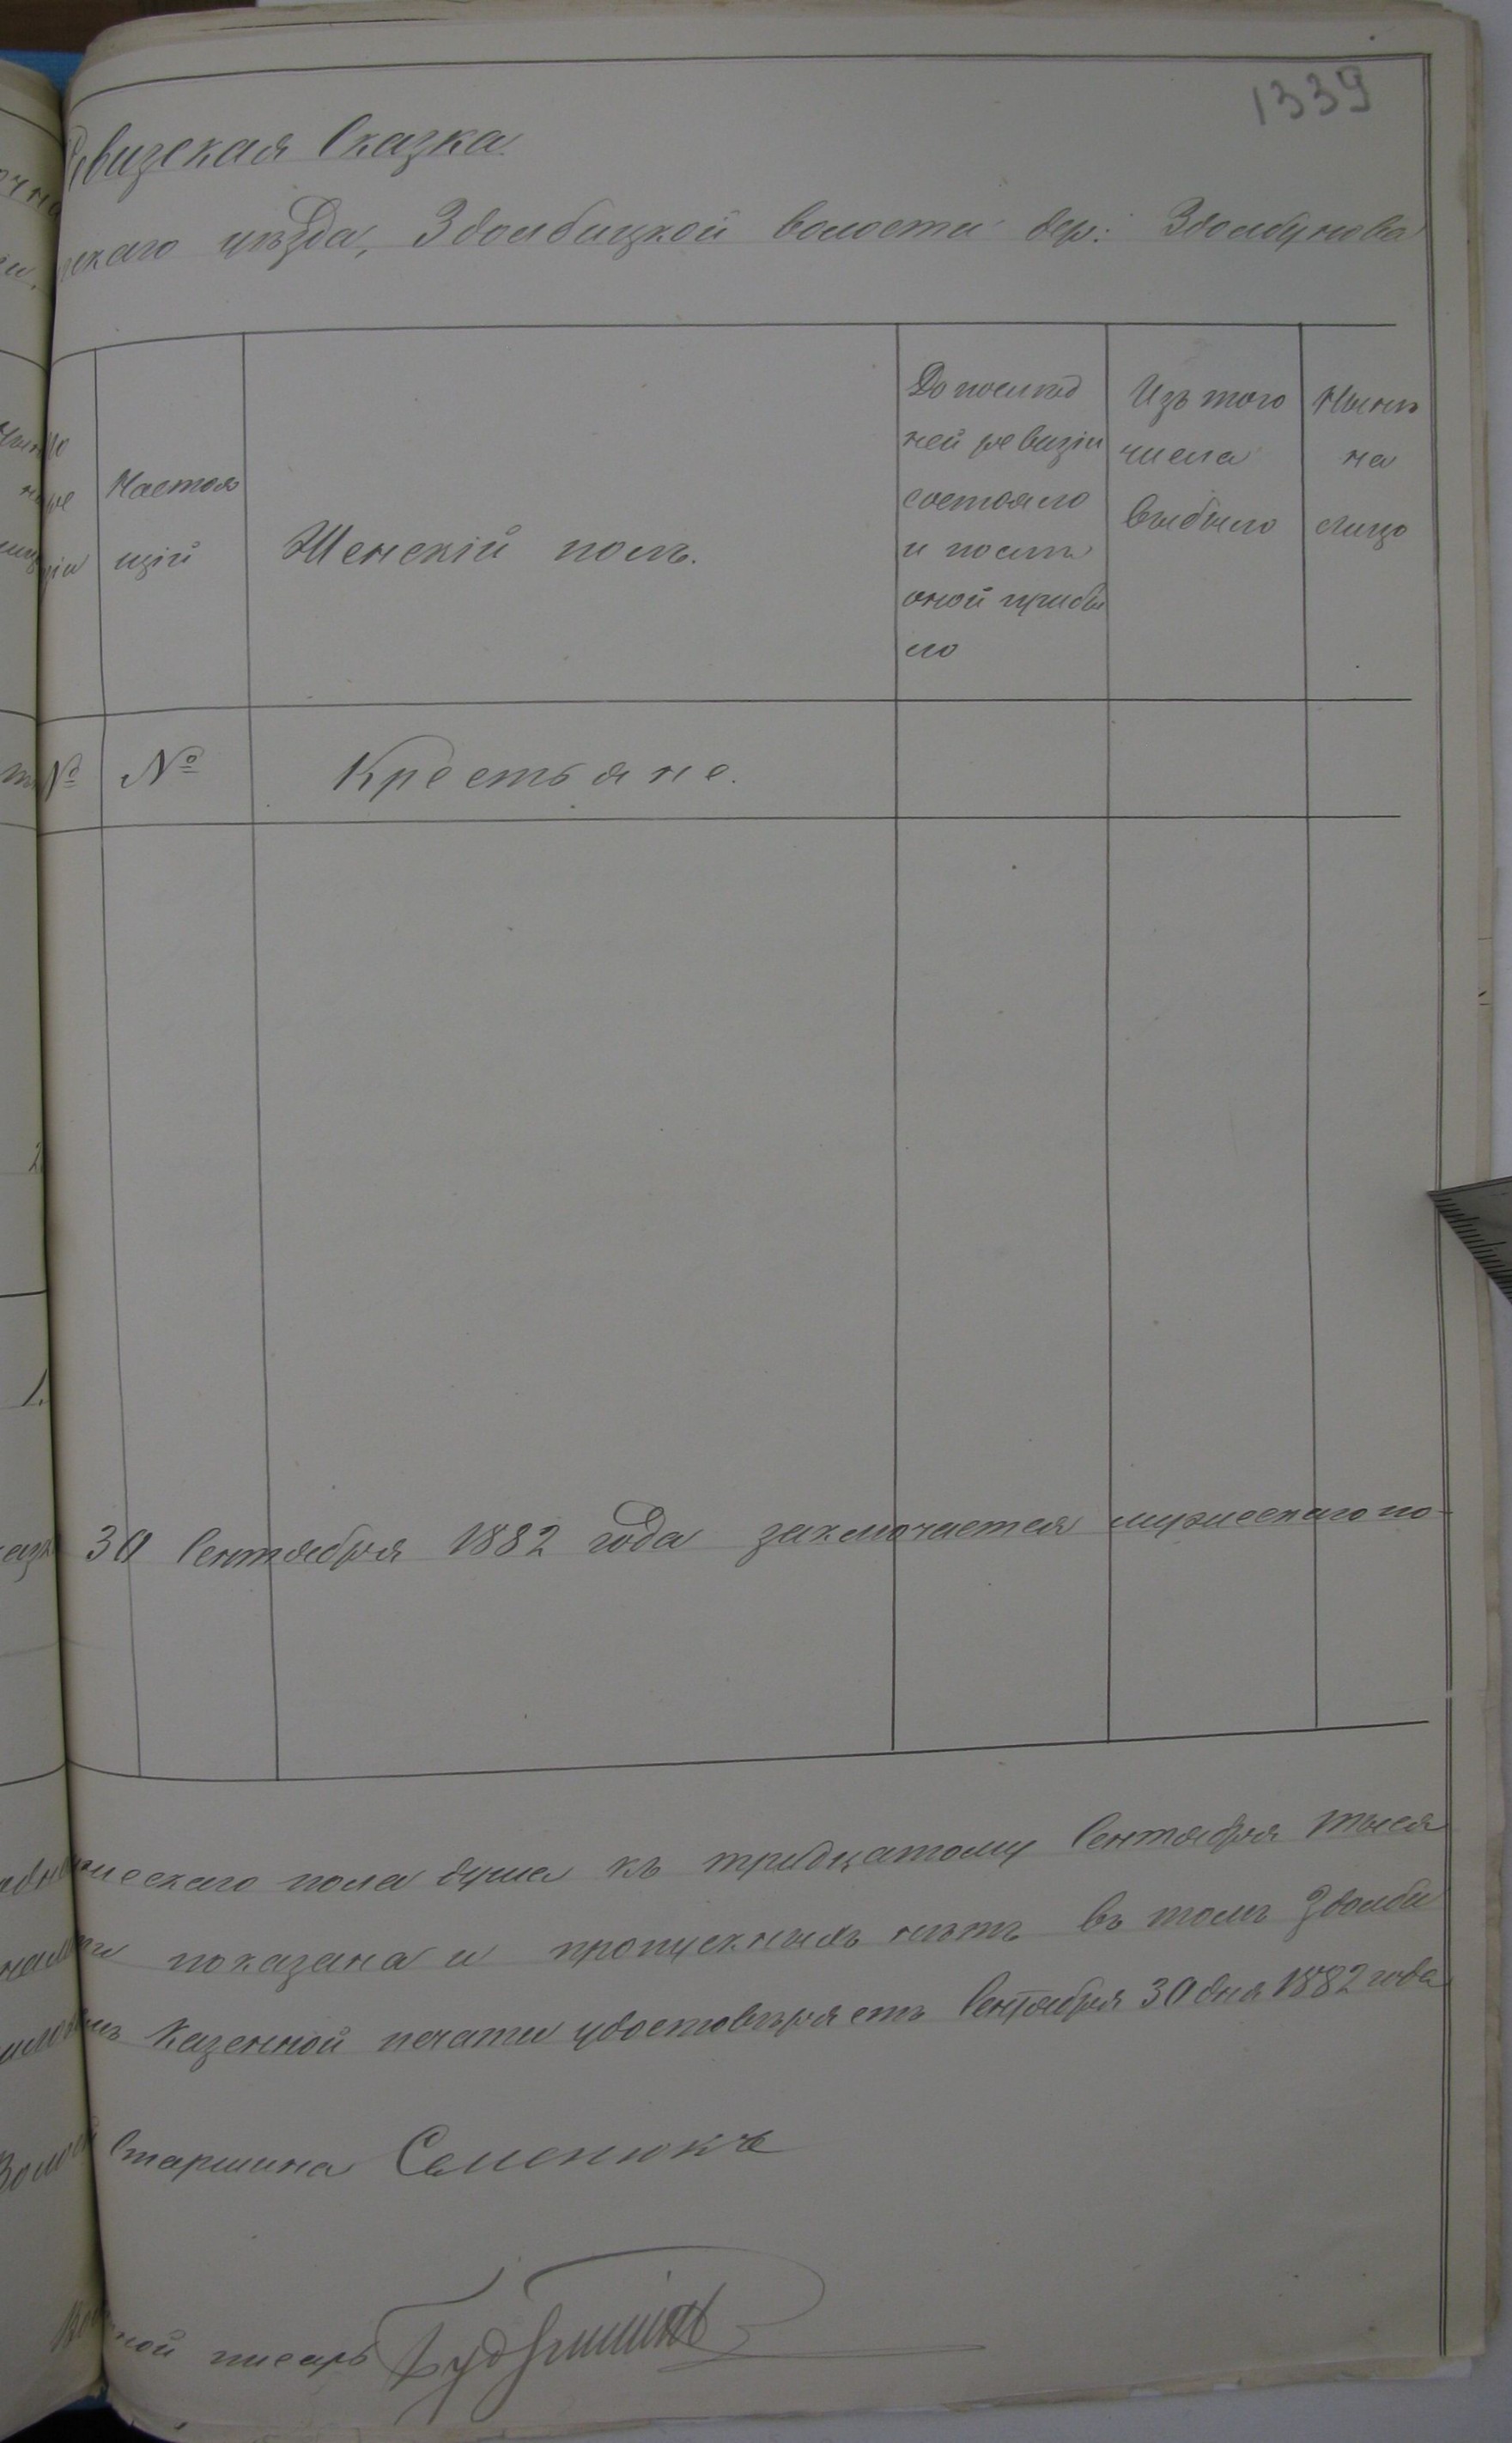 1339
Ревизская Сказка
скаго уѣзда, Здолбицкой волости дер: Здолбунова
Настоя
щій
Женскій полъ.
До послѣд
ней ревизіи
состояло
и послѣ
оной прибы
ло
Изъ того
числа
выбыло
Нынѣ
на
лицо
№
№
Крестьяне.
30 Сентября 1882 года заключается мужескаго по-
мужескаго пола душа къ тридцатому Сентября тыся
показана и пропускныхъ нѣтъ въ томъ Здолби
Казенной печати удостовѣряетъ Сентября 30 дня 1882 года
Старшина Семенюкъ
писарь